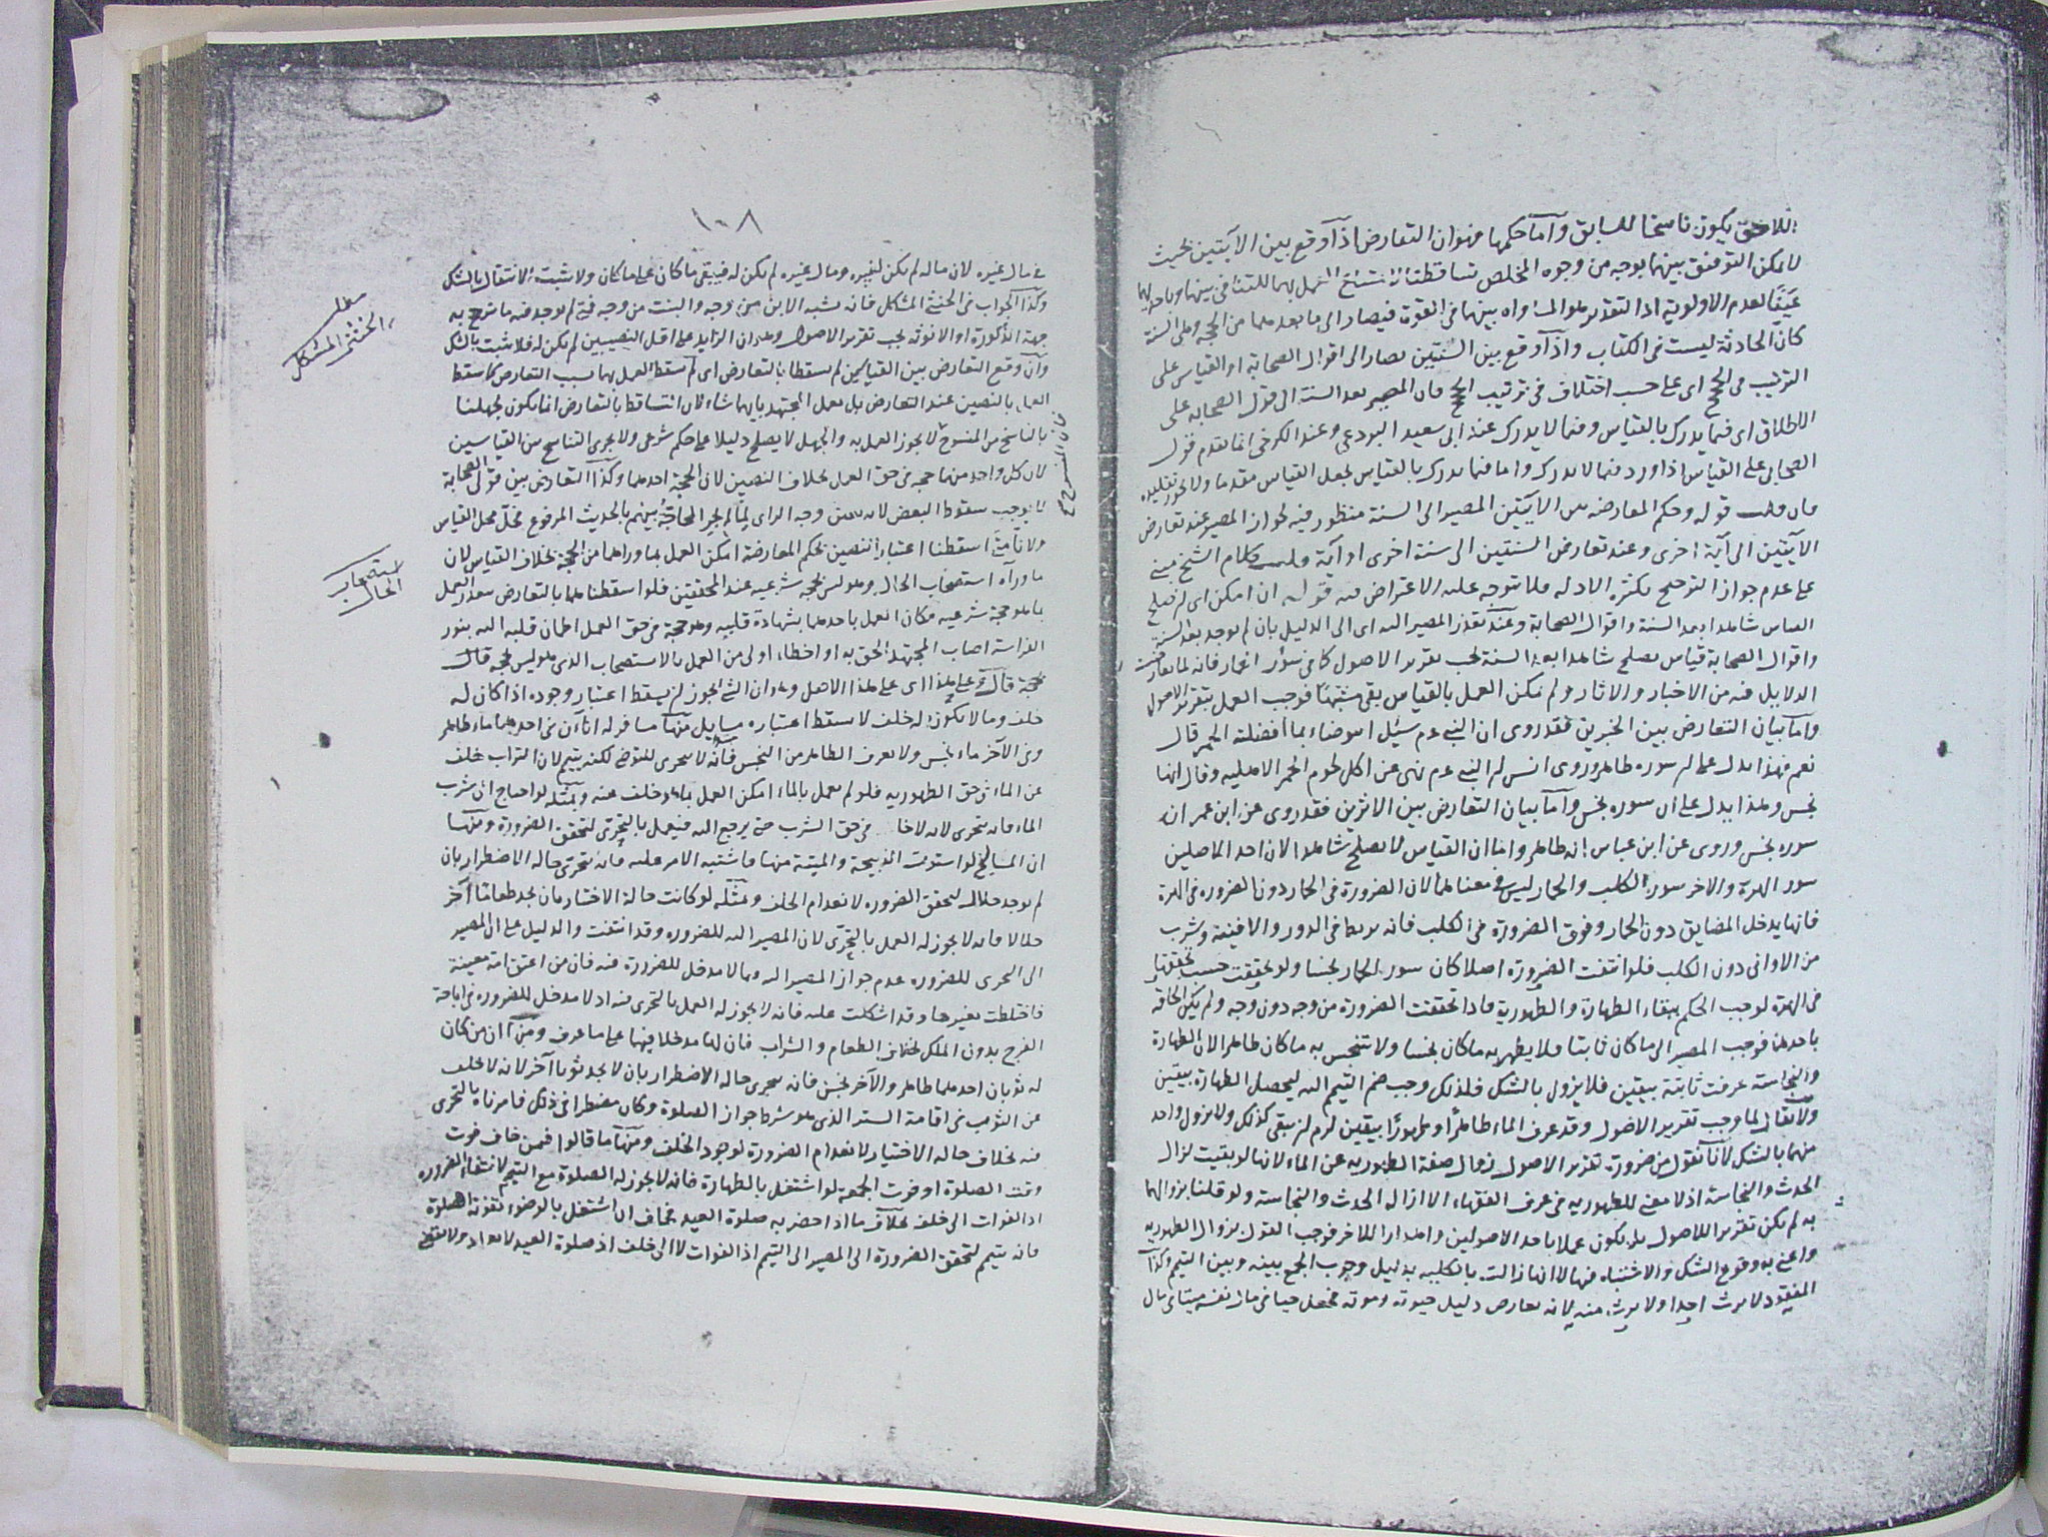 اللاحق يكون ناسخا للسابق وآما حكمها فهوان التعارض اذآ وقع بين الآيتين بحيث
لا يمكن التوفيق بينهما بوجه من وجوه المخلص تساقطتا لامتناع العمل بهما للتنافي بينهما وباحديهما
عينًا لعدم الاولوية اذ التقدير هو المساواه بينهما فى القوة فيصار الى ما بعدهما من الحجة وهى السنة
كانّ الحادثة ليست فى الكتاب واذآ وقع بين السنتين يصار الى اقوال الصحابة او القياس على
الترتيب فى الحجج اى على حسب اختلاف فى ترتيب الحجج فان المصير بعد السنة الى قول الصحابه على
الاطلاق اى فيما يدرك بالقياس وفيما لا يدرك عند ابى سعيد البردعى وعند الكرخى انما يقدم قول
الصحابى على القياس اذا ورد فيما لا يدرك واما فيما يدرك بالقياس يجعل القياس مقدما ولا يجوز تقليده
فان قلت قوله وحكم المعارضه بين الآيتين المصير الى السنة منظور فيه لجواز المصير عند تعارض
الآيتين الى آية اخرى وعند تعارض السنتين الى سنة اخرى او آية قلت كلام الشيخ مبنى
على عدم جواز الترجيح بكثرة الادله فلا يتوجه عليه الاعتراض به قوله ان امكن اى ان يصلح
القياس شاهدا بعد السنة واقوال الصحابة وعند تعذر المصير اليه اى الى الدليل بان لم يوجد بعد السنة
واقوال الصحابة قياس يصلح شاهدا بعد السنة يجب تقرير الاصول كما فى سؤر الحمار فانه لما تعارضت
الدلايل فيه من الاخبار والاثار ولم يمكن العمل بالقياس بقى مشتبهًا فوجب العمل بتقرير الاصول
وآما بيان التعارض بين الخبرين فقد روى ان النبى عم سئل انتوضاء بما افضلته الحمر قال
نعم فهذا يدل على ان سوره طاهر وروى انس ان النبى عم نهى عن اكل لحوم الحمر الاهليه وقال انها
نجس وهذا يدل على ان سوره نجس وآما بيان التعارض بين الاثرين فقد روى عن ابن عمر ان
سوره نجس وروى عن ابن عباس انه طاهر واما ان القياس لا يصلح شاهدا لان احد الاصلين
سور الهرة والاخر سور الكلب والحمار ليس فى معناهما لان الضرورة فى الحمار دون الضروره فى الهرة
فانها يدخل المضايق دون الحمار وفوق الضرورة فى الكلب فانه يربط فى الدور والافنية ويشرب
من الاوانى دون الكلب فلو انتفت الضرورة اصلا كان سور الحمار نجسا ولو تحققت حسب تحققها
فى الهرة لوجب الحكم ببقاء الطهارة والطهورية فاذا تحققت الضرورة من وجه دون وجه ولم يمكن الحاقه
باحدهما فوجب المصير الى ما كان ثابتا فلا يطهر به ما كان نجسا ولا تنجس به ما كان طاهرا لان الطهارة
والنجاسة عرفت ثابتة بيقين فلا يزول بالشك فلذلك وجب ضم التيمم اليه ليحصل الطهارة بيقين
ولا يقال لما وجب تقرير الاصول وقد عرف الماء طاهرًا وطهورًا بيقين لزم ان يبقى كذلك ولا يزول واحد
منهما بالشك لانا نقول من ضرورة تقرير الاصول زوال صفة الطهوريه عن الماء لانها لو بقيت لزال
الحدث والنجاسة اذ لا معنى للطهوريه فى عرف الفقهاء الا ازالة الحدث والنجاسة ولو قلنا بزوالهما
به لم يكن تقرير اللاصول بل يكون عملا باحد الاصولين واهدارا للاخر فوجب القول بزوال الطهوريه
واعنى به وقوع الشك والاشتباه فيها لا انها زالت بالكليه بدليل وجوب الجمع بينه وبين التيمم وكذآ
المفقود لا يرث احدا ولا يرث منه لانه تعارض دليل حيوته وموته فجعل حيا فى مال نفسه ميتا فى مال
١٠٨
فى مال غيره لان ماله لم يكن لغيره ومال غيره لم يكن له فيبقى ما كان على ما كان ولا يثبت الانتقال بالشك
وكذآ الجواب فى الخنثى المشكل فانه يشبه الابن من وجه والبنت من وجه فمتى لم يوجد فيه ما ترجح به
جهة الذكورة او الانوثه يجب تقرير الاصول وهو ان الزايد على اقل النصيبين لم يكن له فلا يثبت بالشك
وآن وقع التعارض بين القياسين لم يسقطا بالتعارض اى لم يسقط العمل بهما بسبب التعارض كما سقط
العمل بالنصين عند التعارض بل يعمل المجتهد بايهما شاء لان التساقط بالتعارض انما يكون لجهلنا
بالناسخ من المنسوخ لا يجوز العمل به والجهل لا يصلح دليلا على حكم شرعى ولا يجرى التناسخ بين القياسين
لان كل واحد منهما حجة فى حق العمل بخلاف النصين لان الحجة احدهما وكذا التعارض بين قولى الصحابة
لا يوجب سقوط البعض لانه تعين وجه الراى لما لم يجر المحاجة بينهم بالحديث المرفوع فحل محل القياس
ولانا متى اسقطنا اعتبار النصين بحكم المعارضة امكن العمل بما وراءهما من الحجة بخلاف القياس لان
ما وراه استصحاب الحال وهو ليس بحجة شرعيه عند المحققين فلو اسقطناهما بالتعارض تعذر العمل
بما هو حجة شرعيه فكان العمل باحدهما بشهادة قلبه وهو حجة فى حق العمل اطمان قلبه اليه بنور
الفراسة اصاب المجتهد الحق به او اخطاء اولى من العمل بالاستصحاب الذى هو ليس بحجة قال
بحجة قال وعلى هذا اى على هذا الاصل وهو ان الشئ انما لم يسقط اعتبار وجوده اذا كان له
خلف وما لا يكون له خلف لا يسقط اعتباره مسايل منها مسافر له اناءآن فى احدهما ماء طاهر
وفى الآخر ماء نجس ولا يعرف الطاهر من النجس فانه لا يتحرى للتوضى لكنه يتيمم لان التراب خلف
عن الماء فى حق الطهوريه فلو لم يعمل بالماء امكن العمل بما هو خلف عنه وبمثله لو احتاج الى شرب
الماء فانه يتحرى لانه لا خلف فى حق الشرب حتى يرجع اليه فيعمل بالتحرى لتحقق الضرورة ومنها
ان المساليخ لو استوت الذبيحة والميتة منها فاشتبه الامر عليه فانه يتحرى حالة الاضطرار بان
لم يوجد حلالا لتحقق الضروره لانعدام الخلف وبمثله لو كانت حالة الاختيار بان يجد طعاما آخر
حلالا فانه لا يجوز له العمل بالتحرى لان المصير اليه للضروره وقد انتفت والدليل على ان المصير
الى التحرى للضروره عدم جواز المصير اليه فيما لا مدخل للضرورة فيه فان من اعتق امة معينة
فاختلطت بغيرها وقد اشكلت عليه فانه لا يجوز له العمل بالتحرى فيه اذ لا مدخل للضروره فى اباحة
الفرج بدون الملك بخلاف الطعام والشراب فان لها مدخلا فيهما على ما عرف ومنها ان من كان
له ثوبان احدهما طاهر والآخر نجس فانه يتحرى حالة الاضطرار بان لا يجد ثوبا آخر لانه لا خلف
عن الثوب فى اقامة الستر الذى هو شرط جواز الصلوة وكان مضطرا فى ذلك فامرناه بالتحرى
فيه بخلاف حالة الاختيار لانعدام الضرورة لوجود الخلف ومنها ما قالوا فيمن خاف فوت
وقت الصلوة او فوت الجمعة لو اشتغل بالطهارة فانه لا يجوز له الصلوة مع التيمم لانتفاء الضروره
اذ الفوات الى خلف بخلاف ما اذا حضر به صلوة العيد فخاف ان اشتغل بالوضوء تفوته الصلوة
فانه يتيمم لتحقق الضرورة الى المصير الى التيمم اذ الفوات لا الى خلف اذ صلوة العيد لا تعاد ولا تقضى
مطلب
الخنثى المشكل
استصحاب
الحال
فان المنسوخ